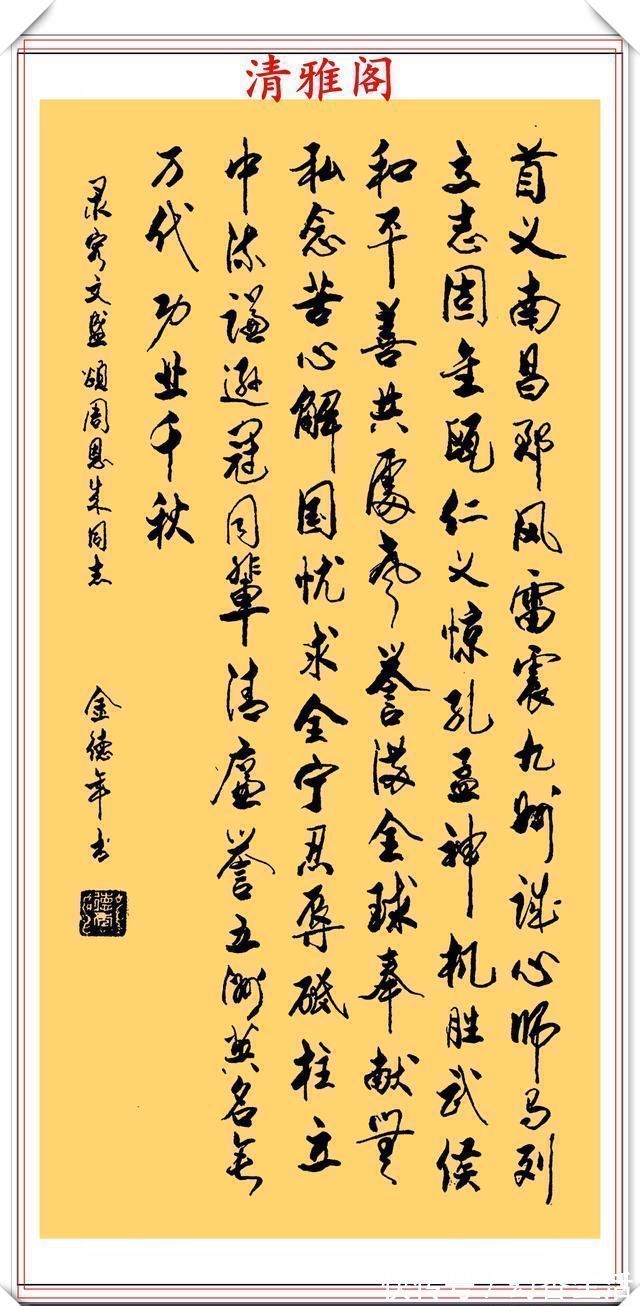 清雅阁
首义南昌郡风雷震九州诚心师马列
立志固金瓯仁义惊孔孟神机胜武侯
和平善共處声誉满全球奉献無
私念苦心解国忧求全宁忍辱砥柱立
中流谦逊冠同辈清廉誉五洲英名垂
万代功业千秋
录文盛颂周恩来同志
金德年书